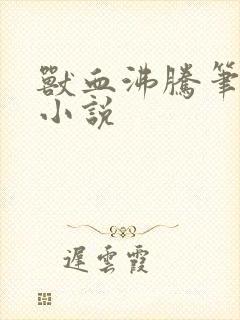 獸血沸騰筆
小說
遲雲霞